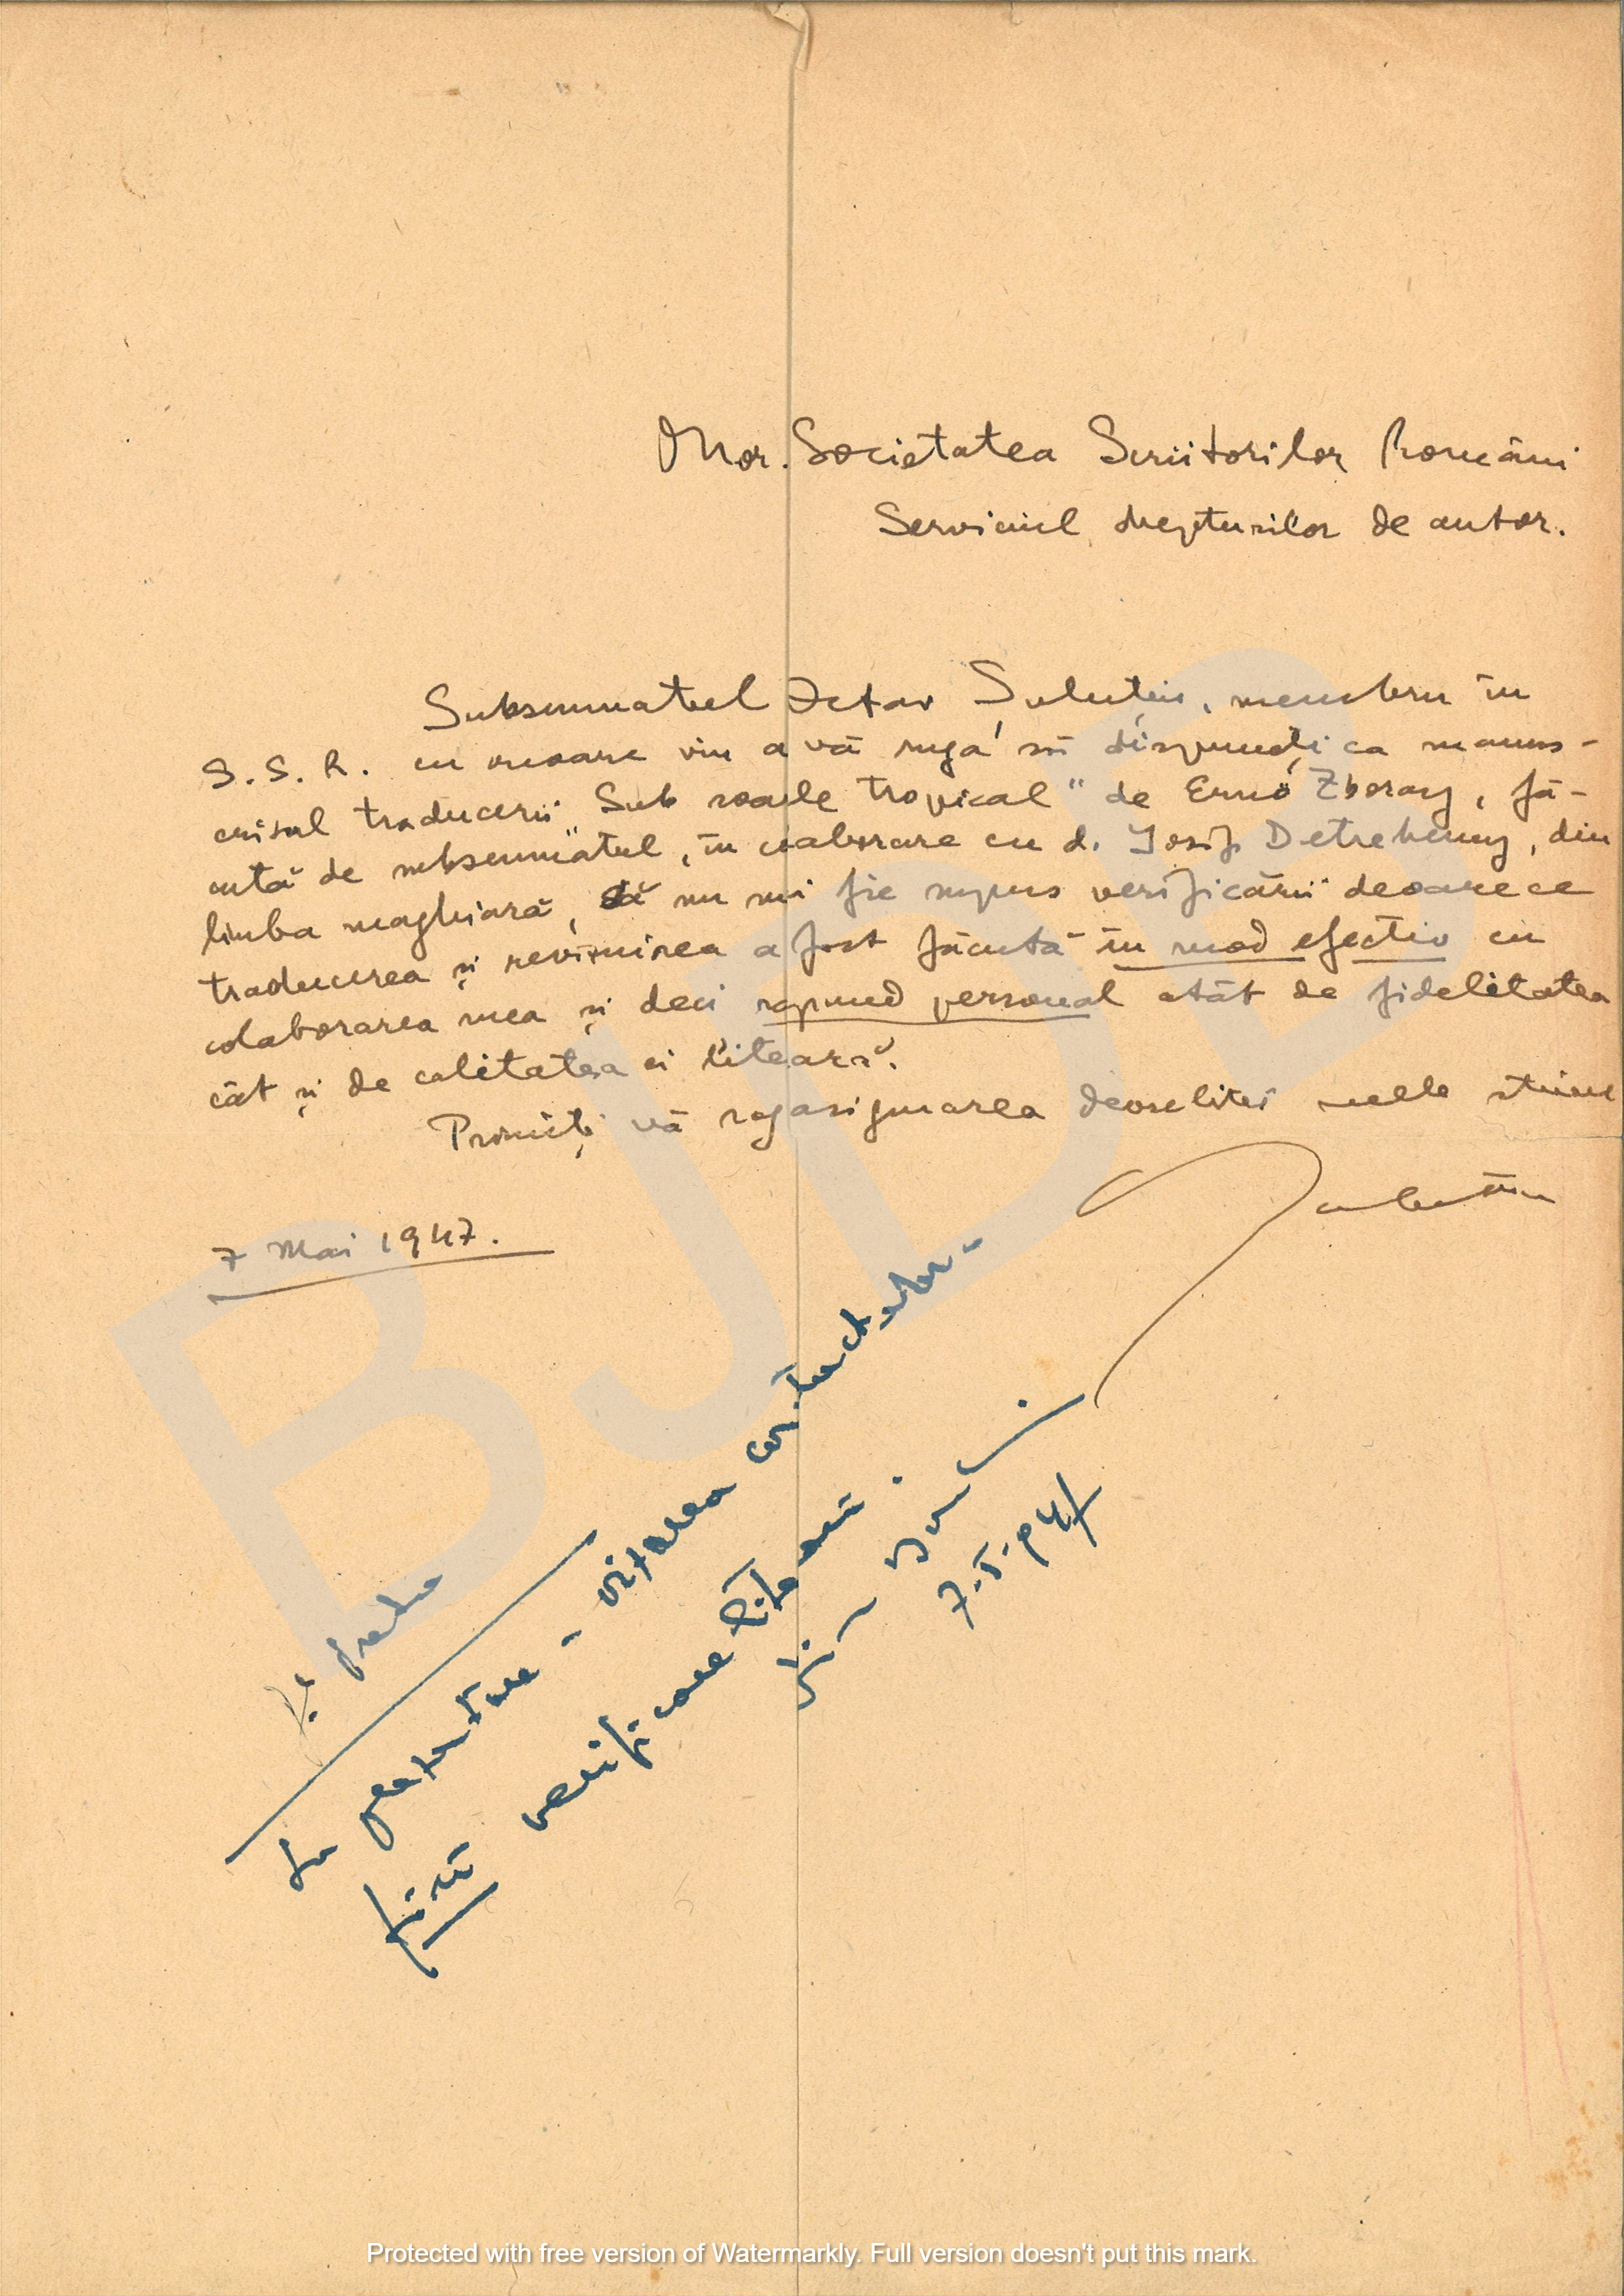 Onor. Societatea Scriitorilor Români
Serviciul drepturilor de autor.
Subsemnatul Octav Șuluțiu, membru în
S.S.R. cu onoare vin a vă ruga să dispuneți ca manus-
crisul traducerii „Sub soarele tropical" de Ernö Zboray, fă-
cută de subsemnatul, în colaborare cu d. Iosif Detrehemy, din
limba maghiară, să nu mai fie supus verificării deoarece
traducerea și revizuirea a fost făcută în mod efectiv cu
colaborarea mea și deci răspund personal atât de fidelitatea
cât și de calitatea ei literară.
Primiți vă rog asigurarea deosebitei mele stime
7 Mai 1947.
Șuluțiu
vizarea contractelor -
fără verificare literară.
7.V.947
BJBV
Protected with free version of Watermarkly. Full version doesn't put this mark.